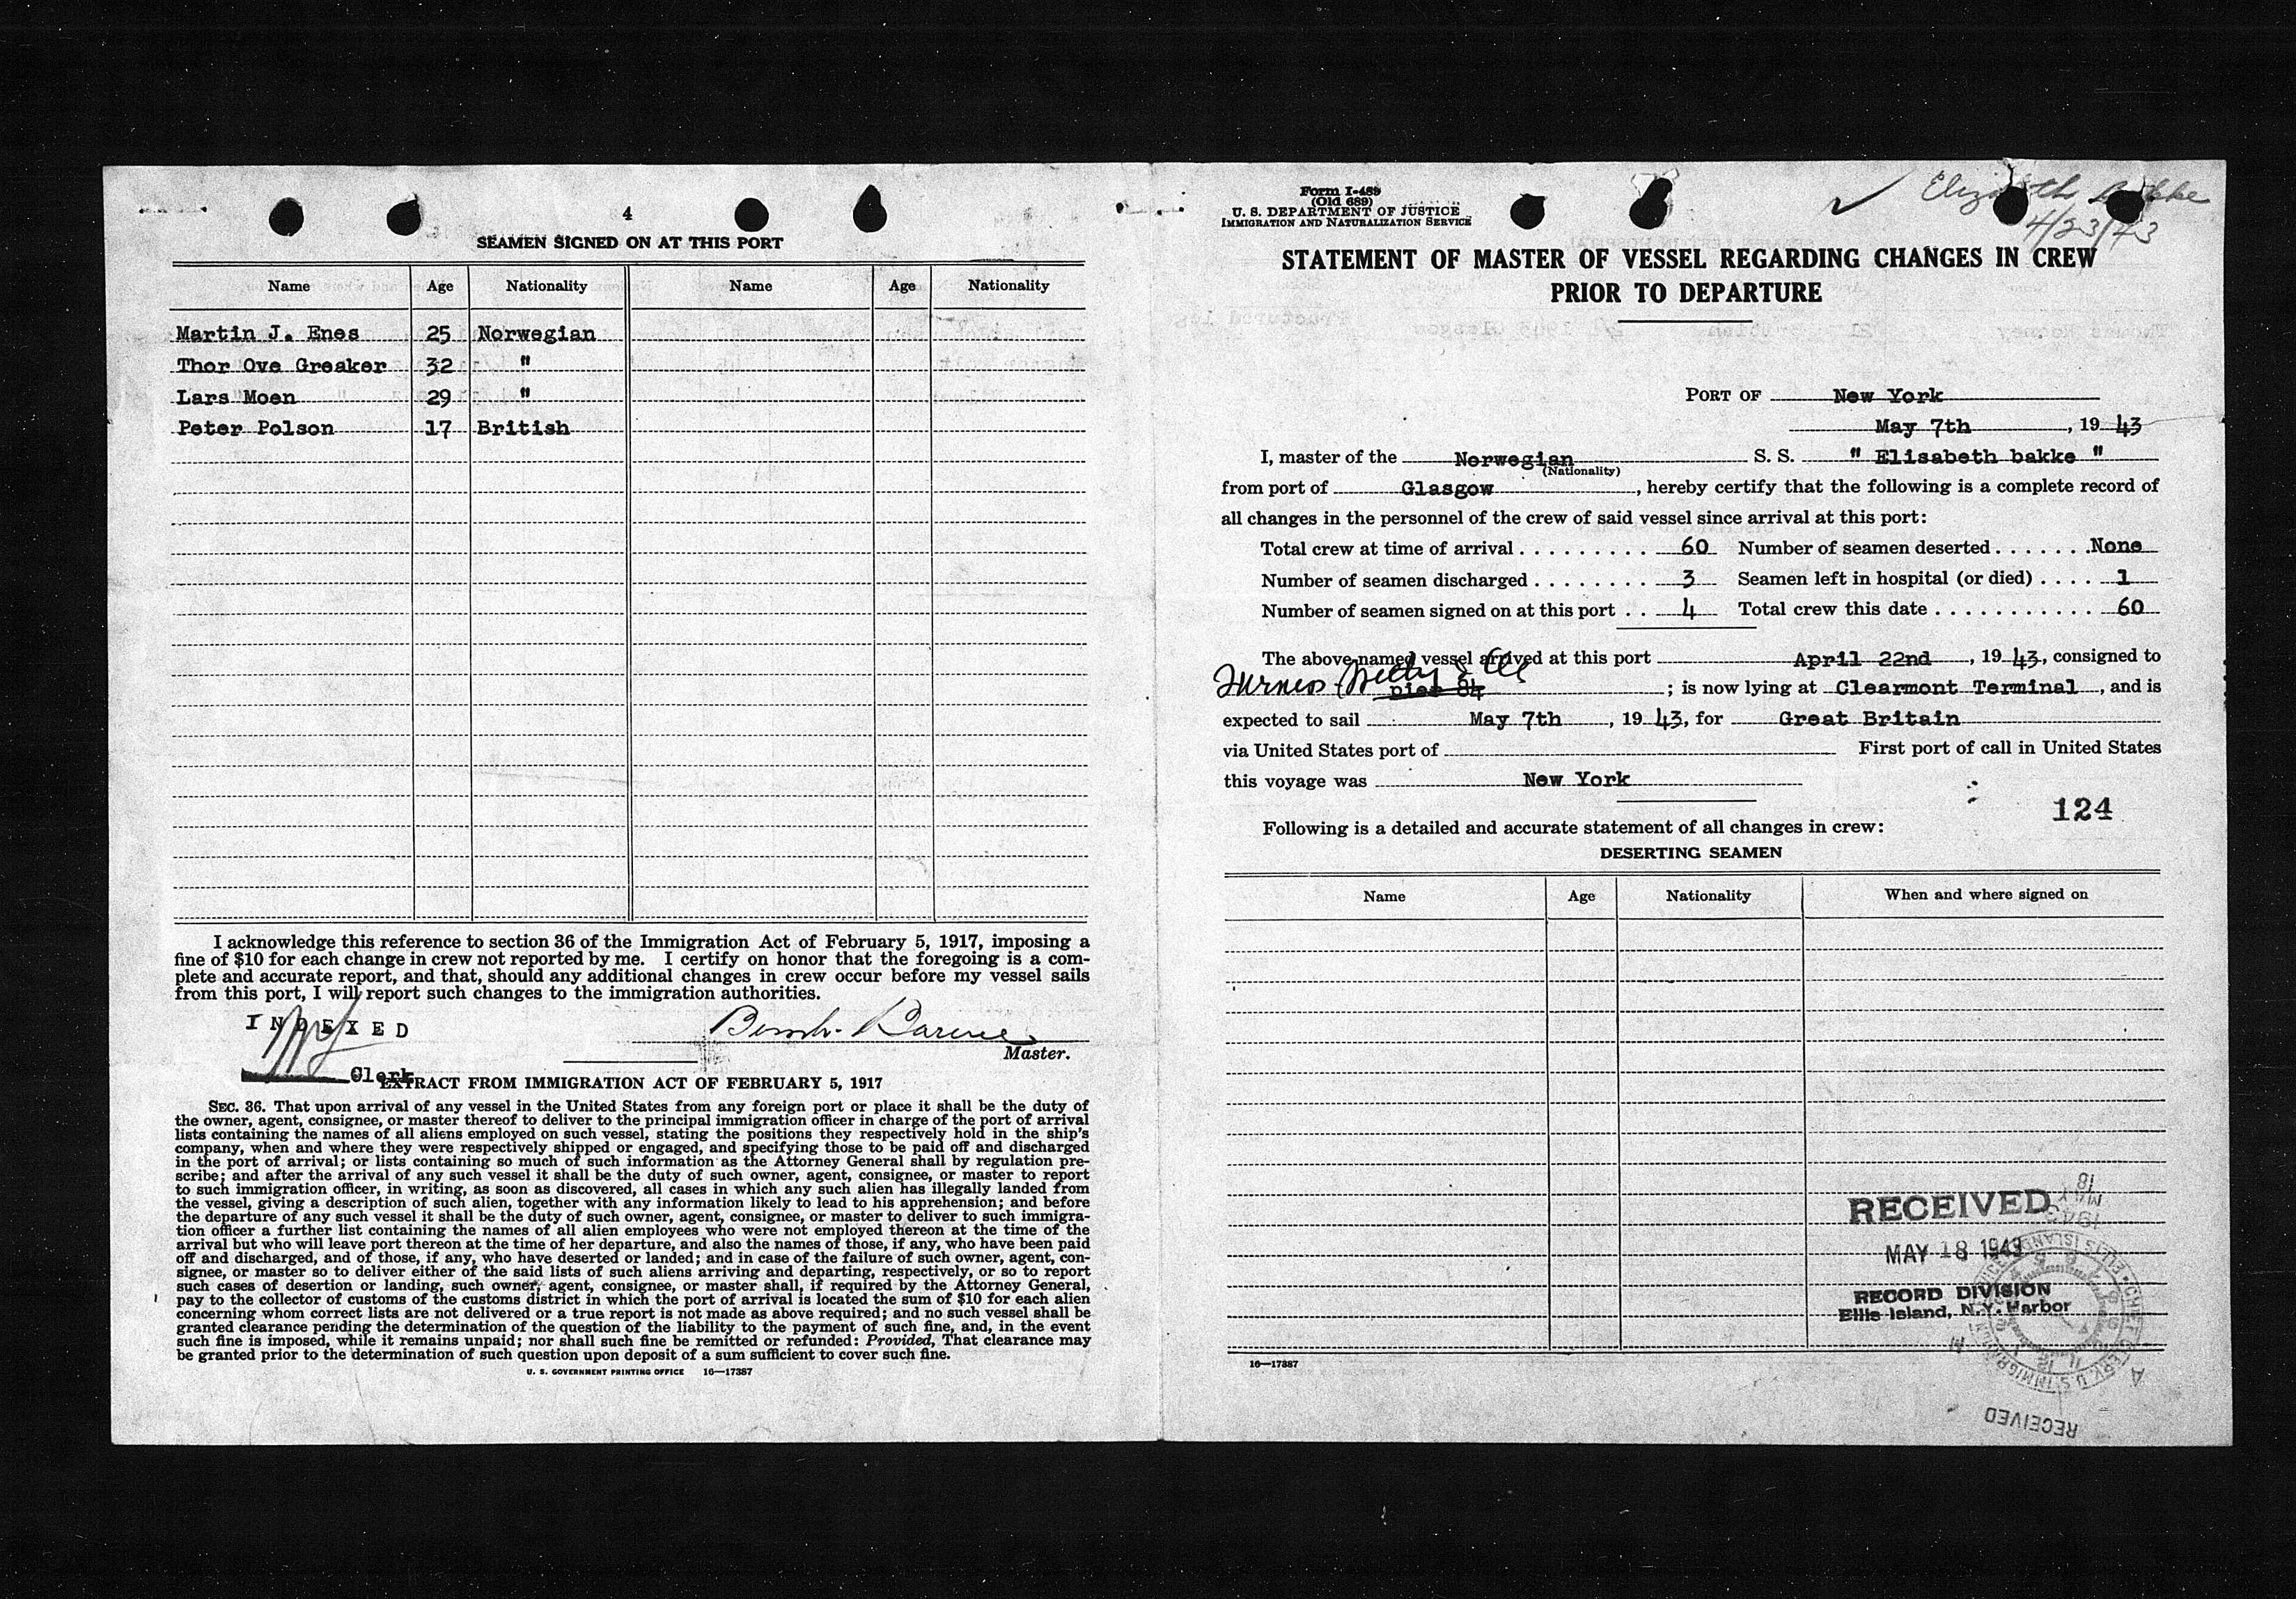 4
SEAMEN SIGNED ON AT THIS PORT
Name Age Nationality Name Age Nationality
Martin J. Enes 25 Norwegian
Thor Ove Greaker 32 "
Lars Moen 29 "
Peter Polson 17 British
I acknowledge this reference to section 36 of the Immigration Act of February 5, 1917, imposing a
fine of $10 for each change in crew not reported by me. I certify on honor that the foregoing is a com-
plete and accurate report, and that, should any additional changes in crew occur before my vessel sails
from this port, I will report such changes to the immigration authorities.
INDEXED
Master.
Clerk
EXTRACT FROM IMMIGRATION ACT OF FEBRUARY 5, 1917
SEC. 36. That upon arrival of any vessel in the United States from any foreign port or place it shall be the duty of
the owner, agent, consignee, or master thereof to deliver to the principal immigration officer in charge of the port of arrival
lists containing the names of all aliens employed on such vessel, stating the positions they respectively hold in the ship's
company, when and where they were respectively shipped or engaged, and specifying those to be paid off and discharged
in the port of arrival; or lists containing so much of such information as the Attorney General shall by regulation pre-
scribe; and after the arrival of any such vessel it shall be the duty of such owner, agent, consignee, or master to report
to such immigration officer, in writing, as soon as discovered, all cases in which any such alien has illegally landed from
the vessel, giving a description of such alien, together with any information likely to lead to his apprehension; and before
the departure of any such vessel it shall be the duty of such owner, agent, consignee, or master to deliver to such immigra-
tion officer a further list containing the names of all alien employees who were not employed thereon at the time of the
arrival but who will leave port thereon at the time of her departure, and also the names of those, if any, who have been paid
off and discharged, and of those, if any, who have deserted or landed; and in case of the failure of such owner, agent, con-
signee, or master so to deliver either of the said lists of such aliens arriving and departing, respectively, or so to report
such cases of desertion or landing, such owner, agent, consignee, or master shall, if required by the Attorney General,
pay to the collector of customs of the customs district in which the port of arrival is located the sum of $10 for each alien
concerning whom correct lists are not delivered or a true report is not made as above required; and no such vessel shall be
granted clearance pending the determination of the question of the liability to the payment of such fine, and, in the event
such fine is imposed, while it remains unpaid; nor shall such fine be remitted or refunded: Provided, That clearance may
be granted prior to the determination of such question upon deposit of a sum sufficient to cover such fine.
U. S. GOVERNMENT PRINTING OFFICE 16—17387
Form I-489
(Old 689)
U. S. DEPARTMENT OF JUSTICE
IMMIGRATION AND NATURALIZATION SERVICE
4/23/43
STATEMENT OF MASTER OF VESSEL REGARDING CHANGES IN CREW
PRIOR TO DEPARTURE
PORT OF New York
May 7th, 1943
I, master of the Norwegian S. S. " Elisabeth bakke "
(Nationality)
from port of Glasgow, hereby certify that the following is a complete record of
all changes in the personnel of the crew of said vessel since arrival at this port:
Total crew at time of arrival . . . . . . . . . . 60 Number of seamen deserted . . . . . . . None
Number of seamen discharged . . . . . . . . 3 Seamen left in hospital (or died) . . . . 1
Number of seamen signed on at this port . . 4 Total crew this date . . . . . . . . . . . . 60
The above-named vessel arrived at this port April 22nd, 1943, consigned to
Furness Withy & Co pier 84; is now lying at Clearmont Terminal, and is
expected to sail May 7th, 1943, for Great Britain
via United States port of First port of call in United States
this voyage was New York
124
Following is a detailed and accurate statement of all changes in crew:
DESERTING SEAMEN
Name Age Nationality When and where signed on
RECEIVED
MAY 18 1943
RECORD DIVISION
Ellis Island, N.Y. Harbor
16—17387
RECEIVED